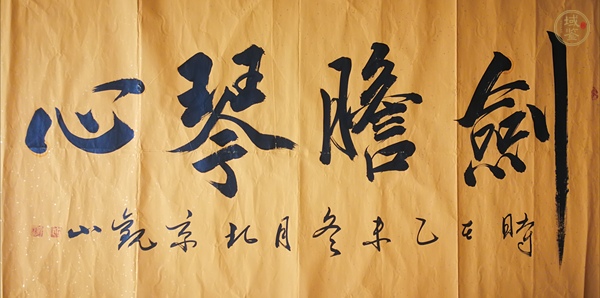 劍膽琴心
時在乙未冬月北京觀山